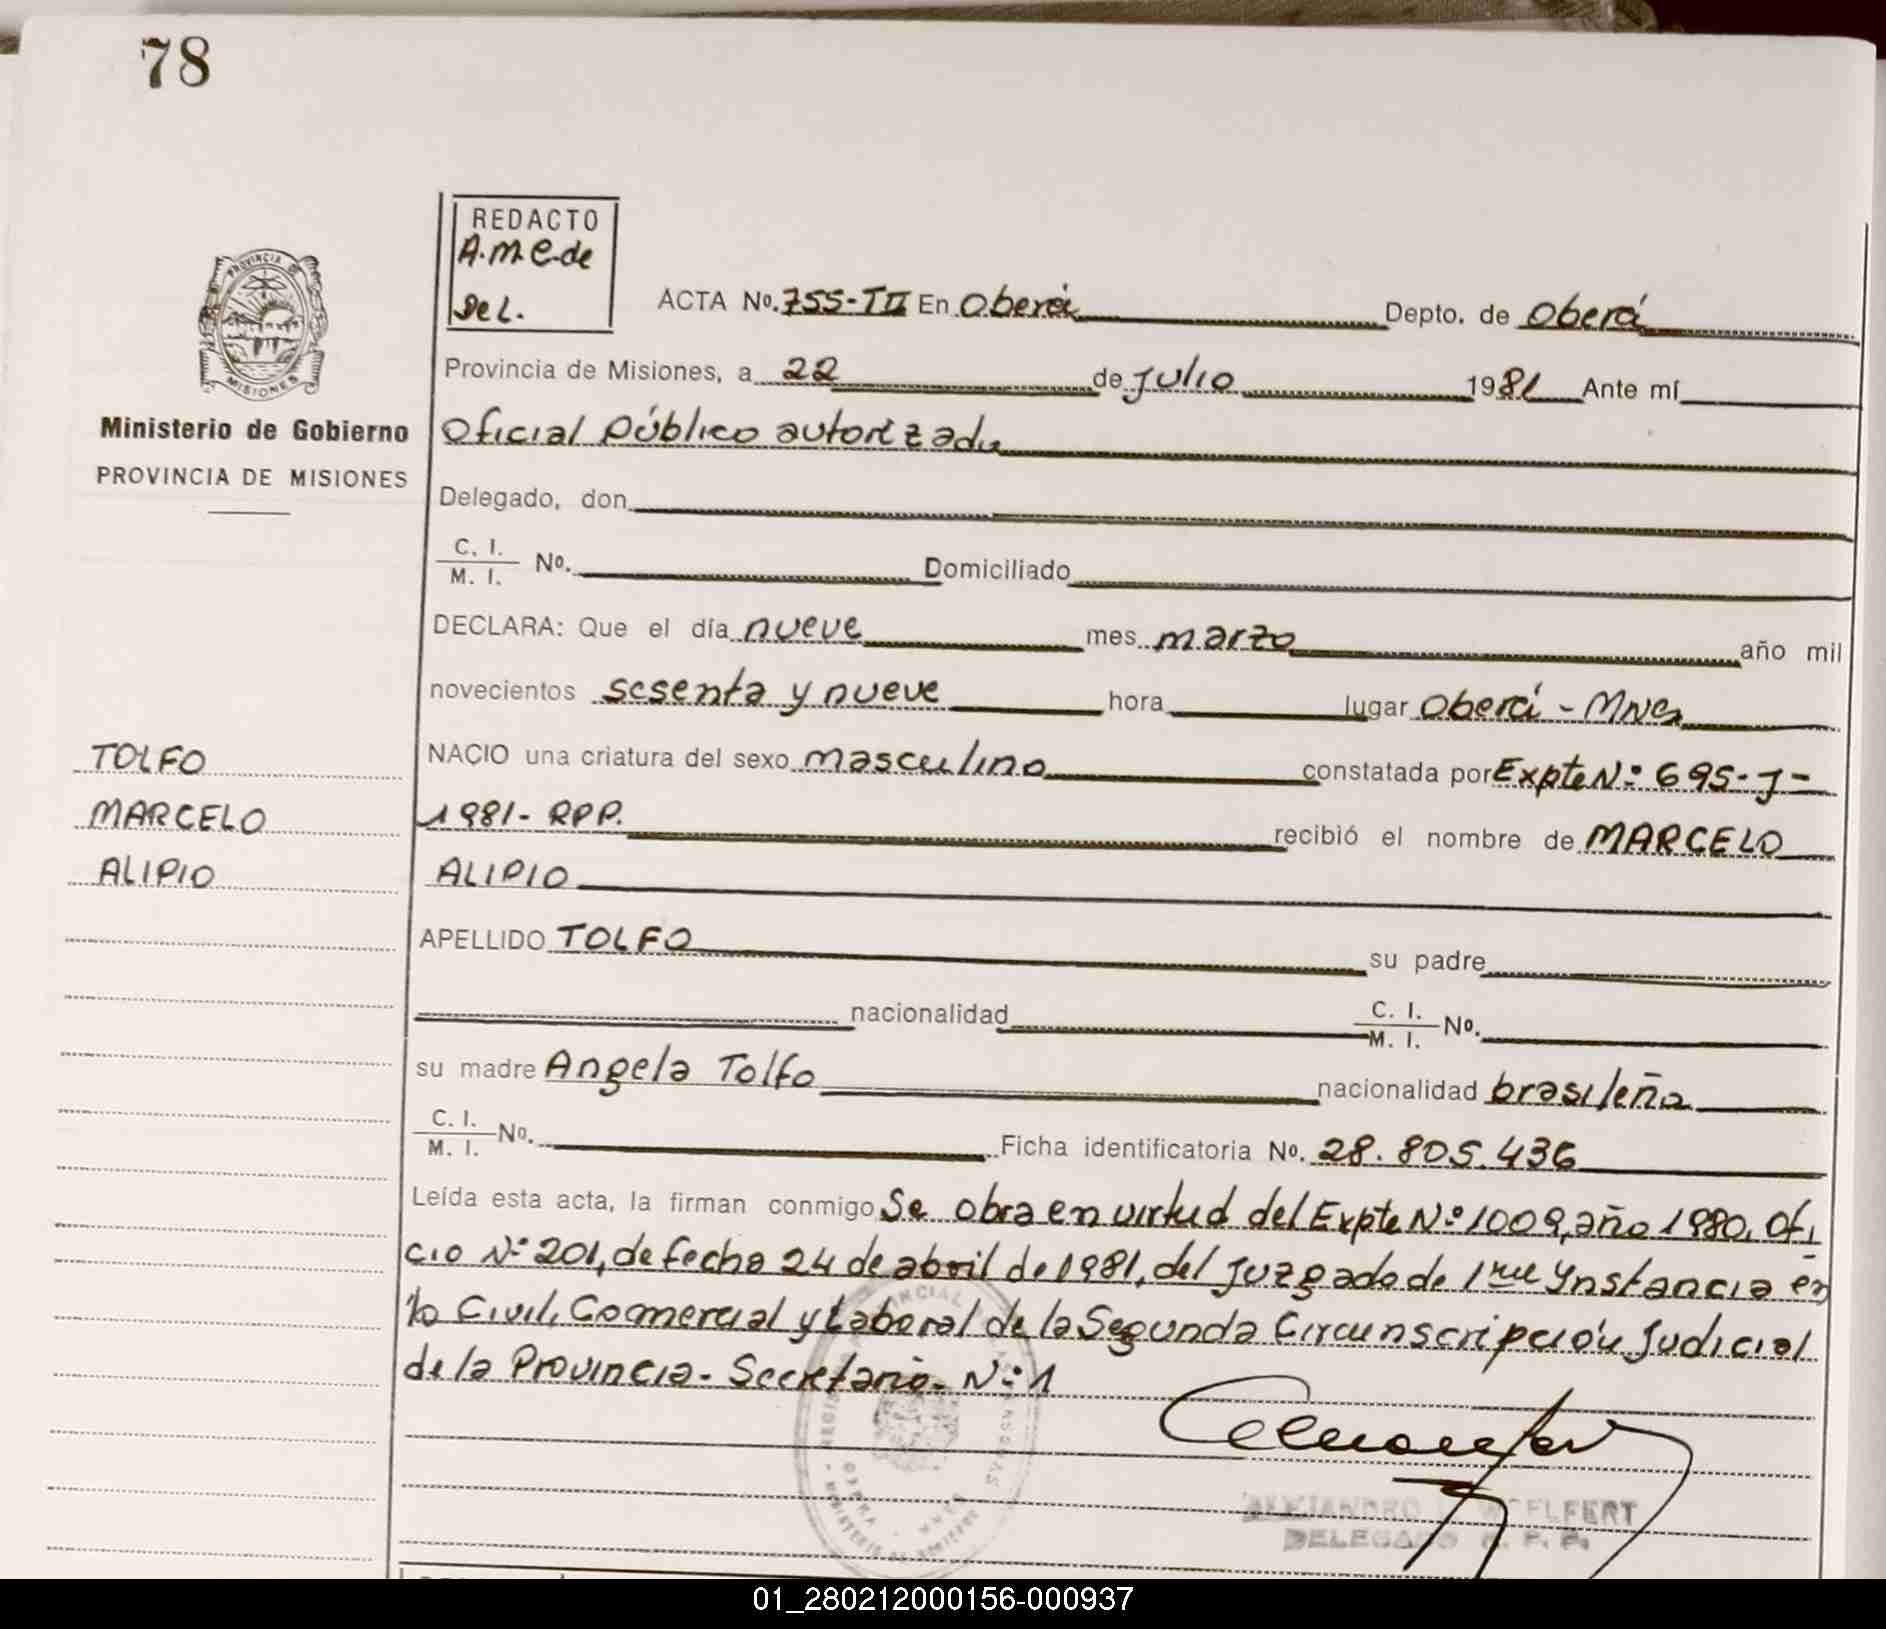 78
REDACTO
A.M.C. de
Del.
PROVINCIA DE
MISIONES
Ministerio de Gobierno
PROVINCIA DE MISIONES
ACTA No. 755-TII En Oberá Depto. de Oberá
Provincia de Misiones, a 22 de Julio 1981 Ante mí
Oficial Público autorizado
Delegado, don
C. I.
M. I. No. Domiciliado
DECLARA: Que el día nueve mes marzo año mil
novecientos sesenta y nueve hora lugar Oberá - Mnes
NACIO una criatura del sexo masculino constatada por Expte Nº 695-J-
1981- RPP. recibió el nombre de MARCELO
ALIPIO
APELLIDO TOLFO su padre
nacionalidad C. I.
M. I. No.
su madre Angela Tolfo nacionalidad brasileña
C. I.
M. I. No. Ficha identificatoria No. 28.805.436
Leída esta acta, la firman conmigo Se obra en virtud del Expte Nº 1009, año 1980, Ofi
cio Nº 201, de fecha 24 de abril de 1981, del Juzgado de 1ra Ynstancia en
lo Civil, Comercial y Laboral de la Segunda Circunscripción Judicial
de la Provincia - Secretaria - Nº 1
TOLFO
MARCELO
ALIPIO
DELEGADO R. P. P.
01_280212000156-000937